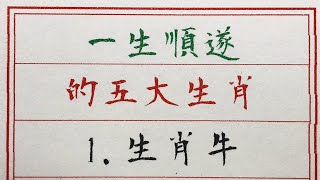 一生順遂
的五大生肖
1.生肖牛